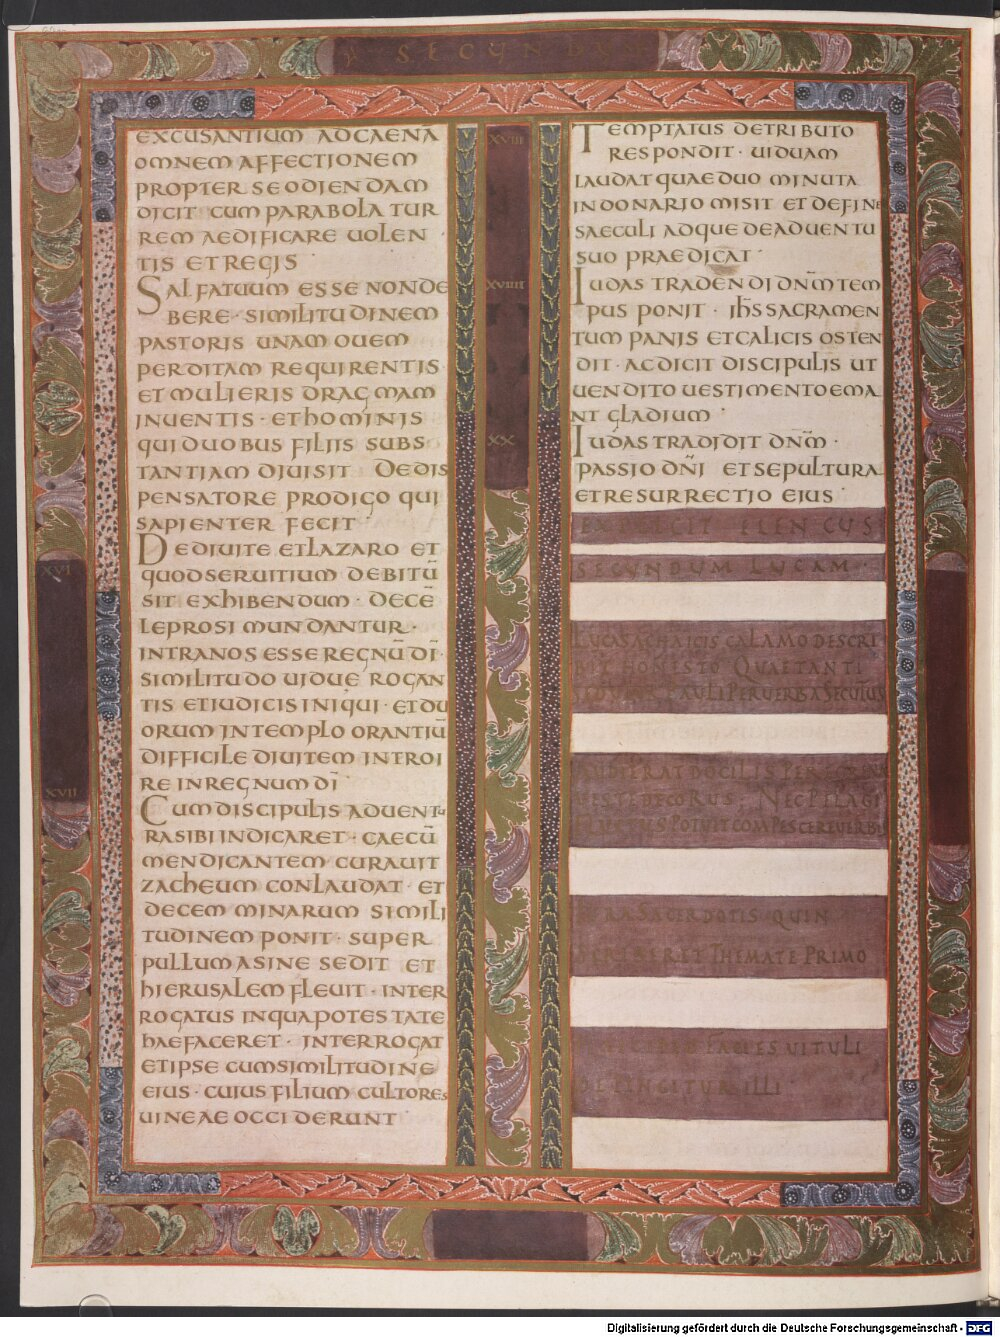 SECUNDUM
EXCUSANTIUM ADCAENA
OMNEM AFFECTIONEM
PROPTER SE ODIENDAM
DICIT CUM PARABOLA TUR
REM AEDIFICARE UOLEN
TIS ET REGIS
XVIII
SAL FATUUM ESSE NONDE
BERE · SIMILITUDINEM
PASTORIS UNAM OUEM
PERDITAM REQUIRENTIS
ET MULIERIS DRAGMAM
INUENTIS · ET HOMINIS
QUI DUOBUS FILIIS SUBS
TANTIAM DIUISIT DEDIS
PENSATORE PRODIGO QUI
SAPIENTER FECIT
XVI
DE DIUITE ET LAZARO ET
QUOD SERUITIUM DEBITŪ
SIT EXHIBENDUM · DECĒ
LEPROSI MUNDANTUR ·
INTRA NOS ESSE REGNŪ DĪ ·
SIMILITUDO UIDUE ROGAN
TIS ET IUDICIS INIQUI · ET DU
ORUM IN TEMPLO ORANTIŪ
DIFFICILE DIUITEM INTROI
RE IN REGNUM DĪ
XVII
CUM DISCIPULIS ADUENTU
RA SIBI INDICARET · CAECŪ
MENDICANTEM CURAUIT
ZACHEUM CONLAUDAT · ET
DECEM MINARUM SIMILI
TUDINEM PONIT · SUPER
PULLUM ASINE SEDIT ET
HIERUSALEM FLEUIT · INTER
ROGATUS IN QUA POTESTATE
HAEC FACERET · INTERROGAT
ET IPSE CUM SIMILITUDINE
EIUS · CUIUS FILIUM CULTORES
UINEAE OCCIDERUNT
TEMPTATUS DE TRIBUTO
RESPONDIT · UIDUAM
LAUDAT QUAE DUO MINUTA
IN DONARIO MISIT ET DE FINE
SAECULI ADQUE DE ADUENTU
SUO PRAEDICAT ·
XVIIII
IUDAS TRADENDI DN̄M TEM
PUS PONIT · IH̄S SACRAMEN
TUM PANIS ET CALICIS OSTEN
DIT · AC DICIT DISCIPULIS UT
UENDITO UESTIMENTO EMA
NT GLADIUM ·
XX
IUDAS TRADIDIT DN̄M ·
PASSIO DN̄I ET SEPULTURA
ET RESURRECTIO EIUS ·
EXPLICIT ELENCUS
SECUNDUM LUCAM ·
LUCAS ACHAICIS CALAMO DESCRI
BIT HONESTO QUAE TANTI
SEQUITUR PAULI PER UERBA SECUTUS
AUDIERAT DOCILIS PEREGRINAE
DECORUS · NEC PELAGI
FLUCTUS POTUIT COMPESCERE UERBI
IURA SACERDOTIS QUIN
SCRIBERET THEMATE PRIMO
FACIES UITULI
DEPINGITUR ILLI
Digitalisierung gefördert durch die Deutsche Forschungsgemeinschaft - DFG